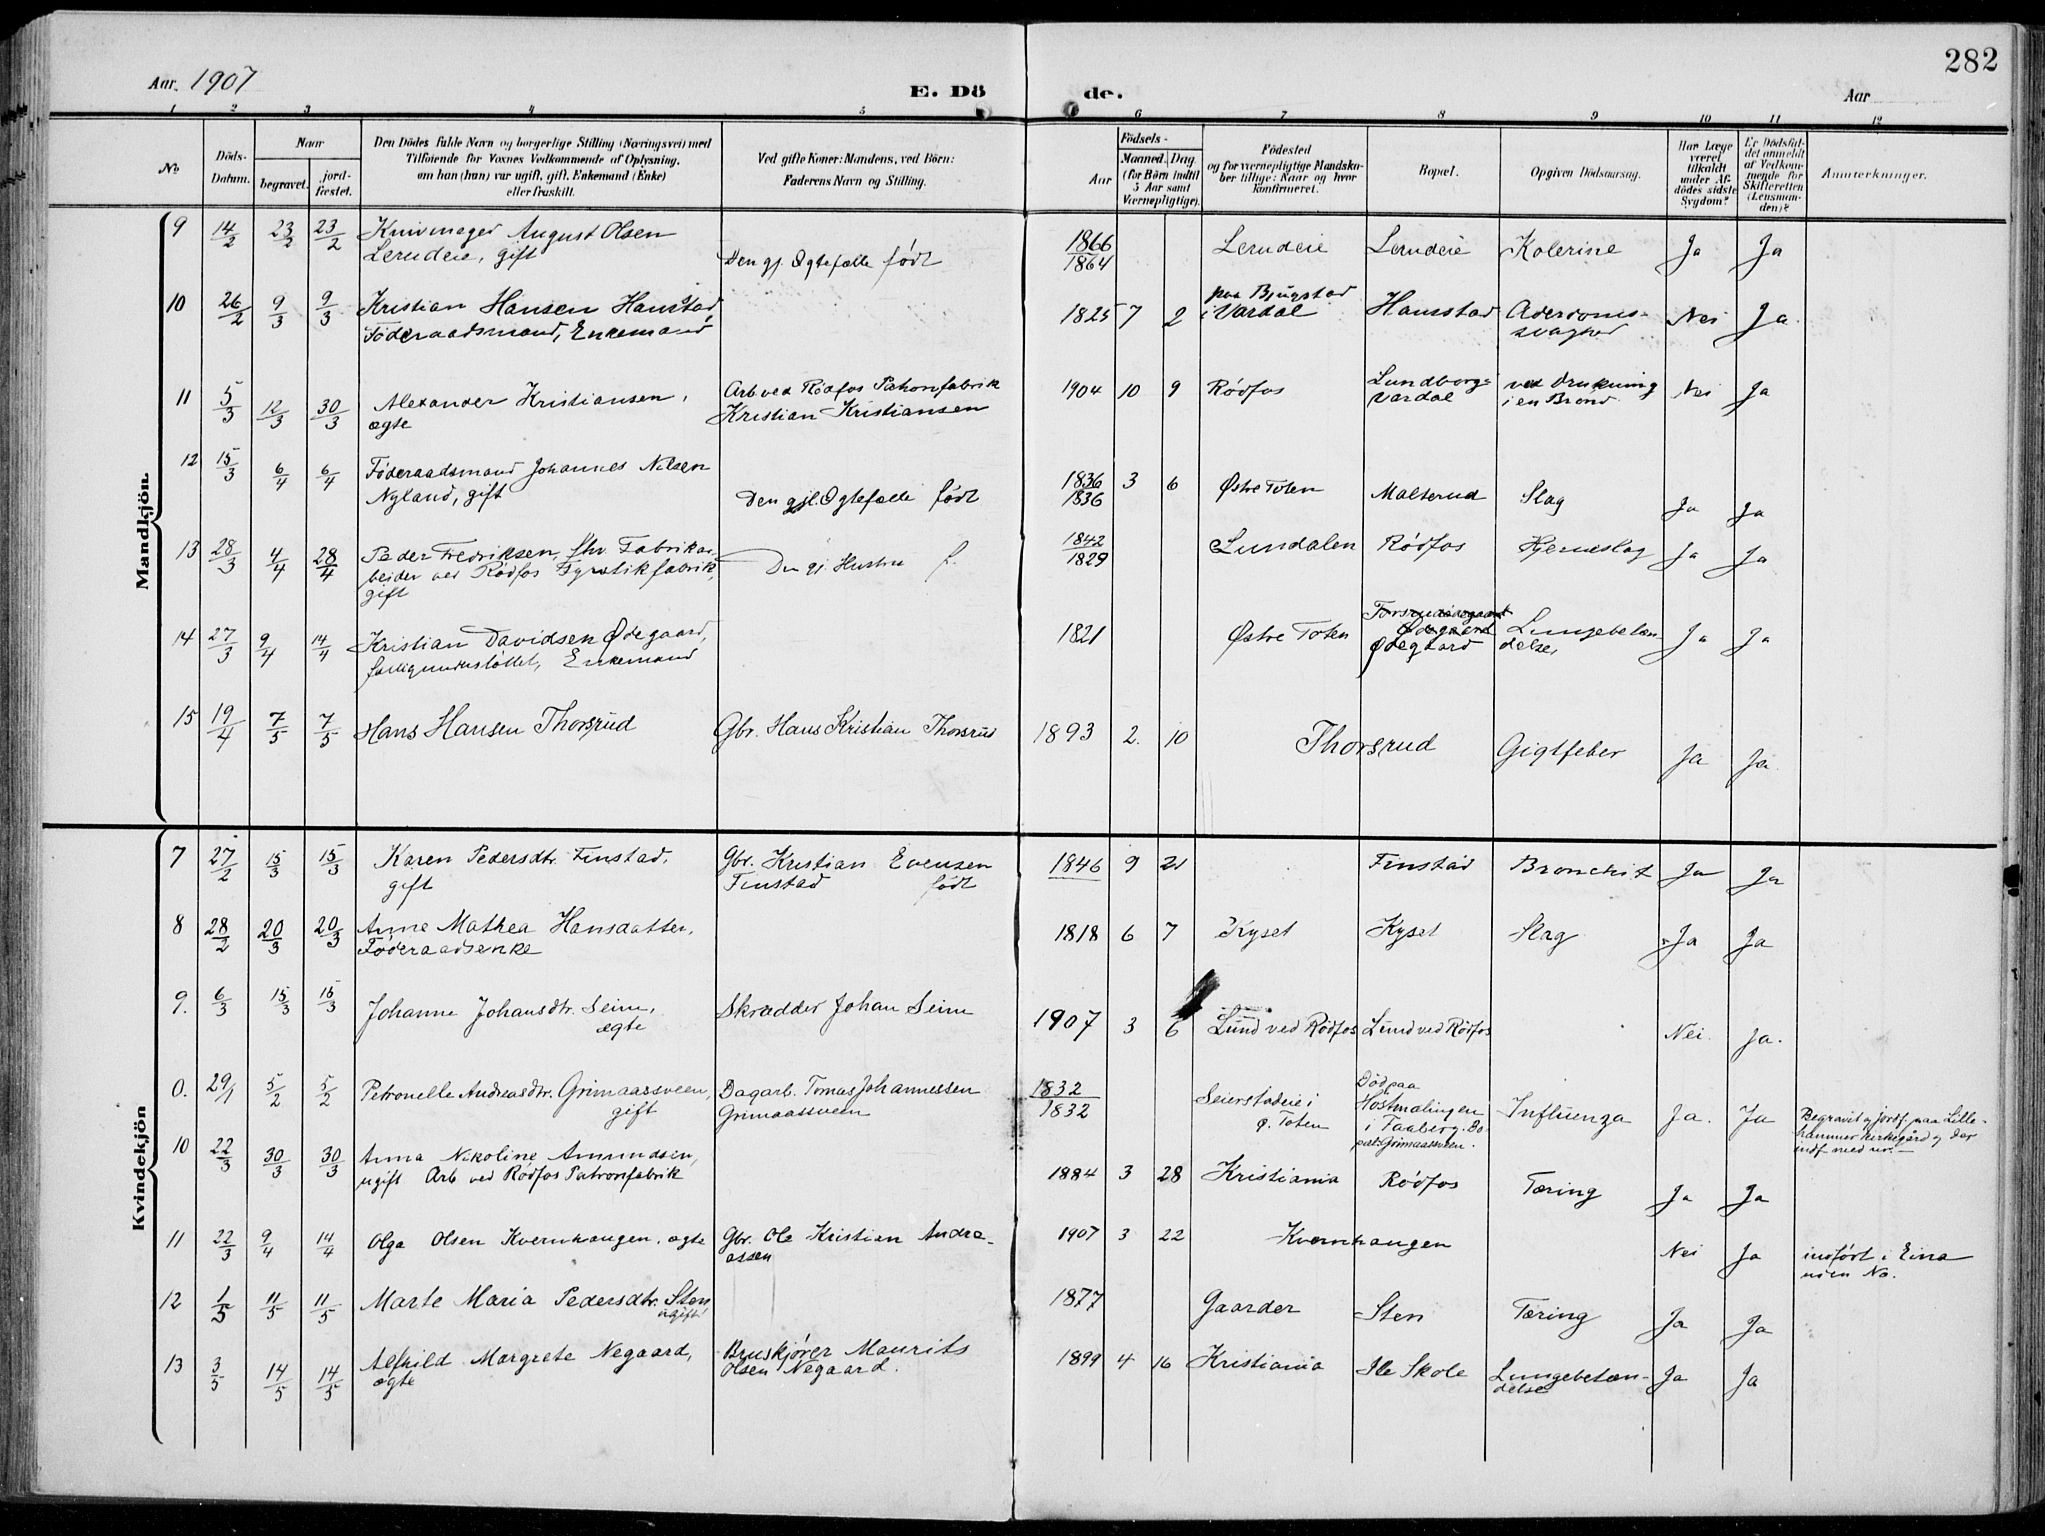 282
Aar. 1907
E. Dö
de.
Aar
1 2 3 4 5 6 7 8 9 10 11 12
No
Döds-
Datum.
Naar
begravet.
jord-
fæstet.
Den Dödes fulde Navn og borgerlige Stilling (Næringsvei) med
Tilföiende for Voxnes Vedkommende af Oplysning,
om han (hun) var ugift, gift, Enkemand (Enke)
eller fraskilt.
Ved gifte Koner: Mandens, ved Börn:
Faderens Navn og Stilling.
Födsels-
Aar
Maaned. Dag.
(for Börn indtil
5 Aar samt
Værnepligtige).
Födested
og for værnepligtige Mandska-
ber tillige: Naar og hvor
konfirmeret.
Bopæl.
Opgiven Dödsaarsag.
Har Læge
været
tilkaldt
under Af-
dödes sidste
Sygdom?
Er Dödsfal-
det anmeldt
af Vedkom-
mende for
Skifteretten
(Lensman-
den)?
Anmerkninger.
Mandkjön.
9 14/2 23/2 23/2 Knivmager August Olsen 1866 Lerudeie Lerudeie Kolerine Ja Ja
Lerudeie, gift Den gj. Ægtefælle født 1864
10 26/2 9/3 9/3 Kristian Hansen Hanstad, 1825 7 2 paa Bjugstad Hansstad Alderdoms- Nei Ja.
Föderaadsmand, Enkemand i Vardal svaghed
11 5/3 12/3 30/3 Alexander Kristiansen, Arb ved Rödfos Patronfabrik 1904 10 9 Rödfos Lundborg i ved Drukning Nei Ja
ægte Kristian Kristiansen Vardal i en Brønd.
12 15/3 6/4 6/4 Föderaadsmand Johannes Nilsen 1836 3 6 Østre Toten Malterud Slag Ja Ja
Nyland, gift Den gjl. Ægtefælle født 1836
13 28/3 4/4 28/4 Peder Fredriksen, fhv. Fabrikar- 1842 Lundalen Rödfos Hjerneslag Ja Ja
beider ved Rödfos Fyrstikfabrik, Den gj. Hustru f. 1829
gift
14 27/3 9/4 14/4 Kristian Davidsen Ødegaard, 1821 Østre Toten Ødegaard Lungebetæn- Ja Ja
fattigunderstøttet, Enkemand Ødegaard delse,
15 19/4 7/5 7/5 Hans Hansen Thorsrud Gbr. Hans Kristian Thorsrud 1893 2. 10 Thorsrud Gigtfeber Ja Ja.
Kvindekjön
7 27/2 15/3 15/3 Karen Pedersdtr. Finstad, Gbr. Kristian Evensen 1846 9 21 Finstad Bronchit Ja Ja
gift Finstad født
8 28/2 20/3 20/3 Anne Mathea Hansdatter, 1818 6 7 Kyset Kyset Slag Ja Ja
Föderaadsenke
9. 6/3 15/3 15/3 Johanne Johansdtr. Seim, Skrædder Johan Seim 1907 3 6 Lund ved Rödfos Lund ved Rödfos Nei. Ja.
ægte
0. 29/1 5/2 5/2 Petronelle Andreasdtr. Grimaassveen, Dagarb. Tomas Johannessen 1832 Seierstadeie i Död paa Influenza Ja. Ja Begravet og jordf. paa Lille-
gift Grimaassveen 1832 Ø. Toten Höstmælingen hammer kirkegård og der
i Faaberg. Bo- indf med nr. —
pæl: Grimaassveen.
10 22/3 30/3 30/3 Anna Nikoline Amundsen, 1884 3 28 Kristiania Rödfos Tæring Ja Ja
ugift Arb ved Rödfos Patronfabrik
11 22/3 9/4 14/4 Olga Olsen Kvernhaugen, ægte Gbr. Ole Kristian Andre- 1907 3 22 Kvernhaugen Nei Ja indført i Eina
assen uden No.
12 1/5 11/5 11/5 Marte Maria Pedersdtr. Sten 1877 Gaarder Sten Tæring Ja Ja
ugift
13 3/5 14/5 14/5 Alfhild Margrete Negaard, Bruskjører Maurits 1899 4 16 Kristiania Ile Skole Lungebetæn- Ja Ja
ægte Olsen Negaard. delse